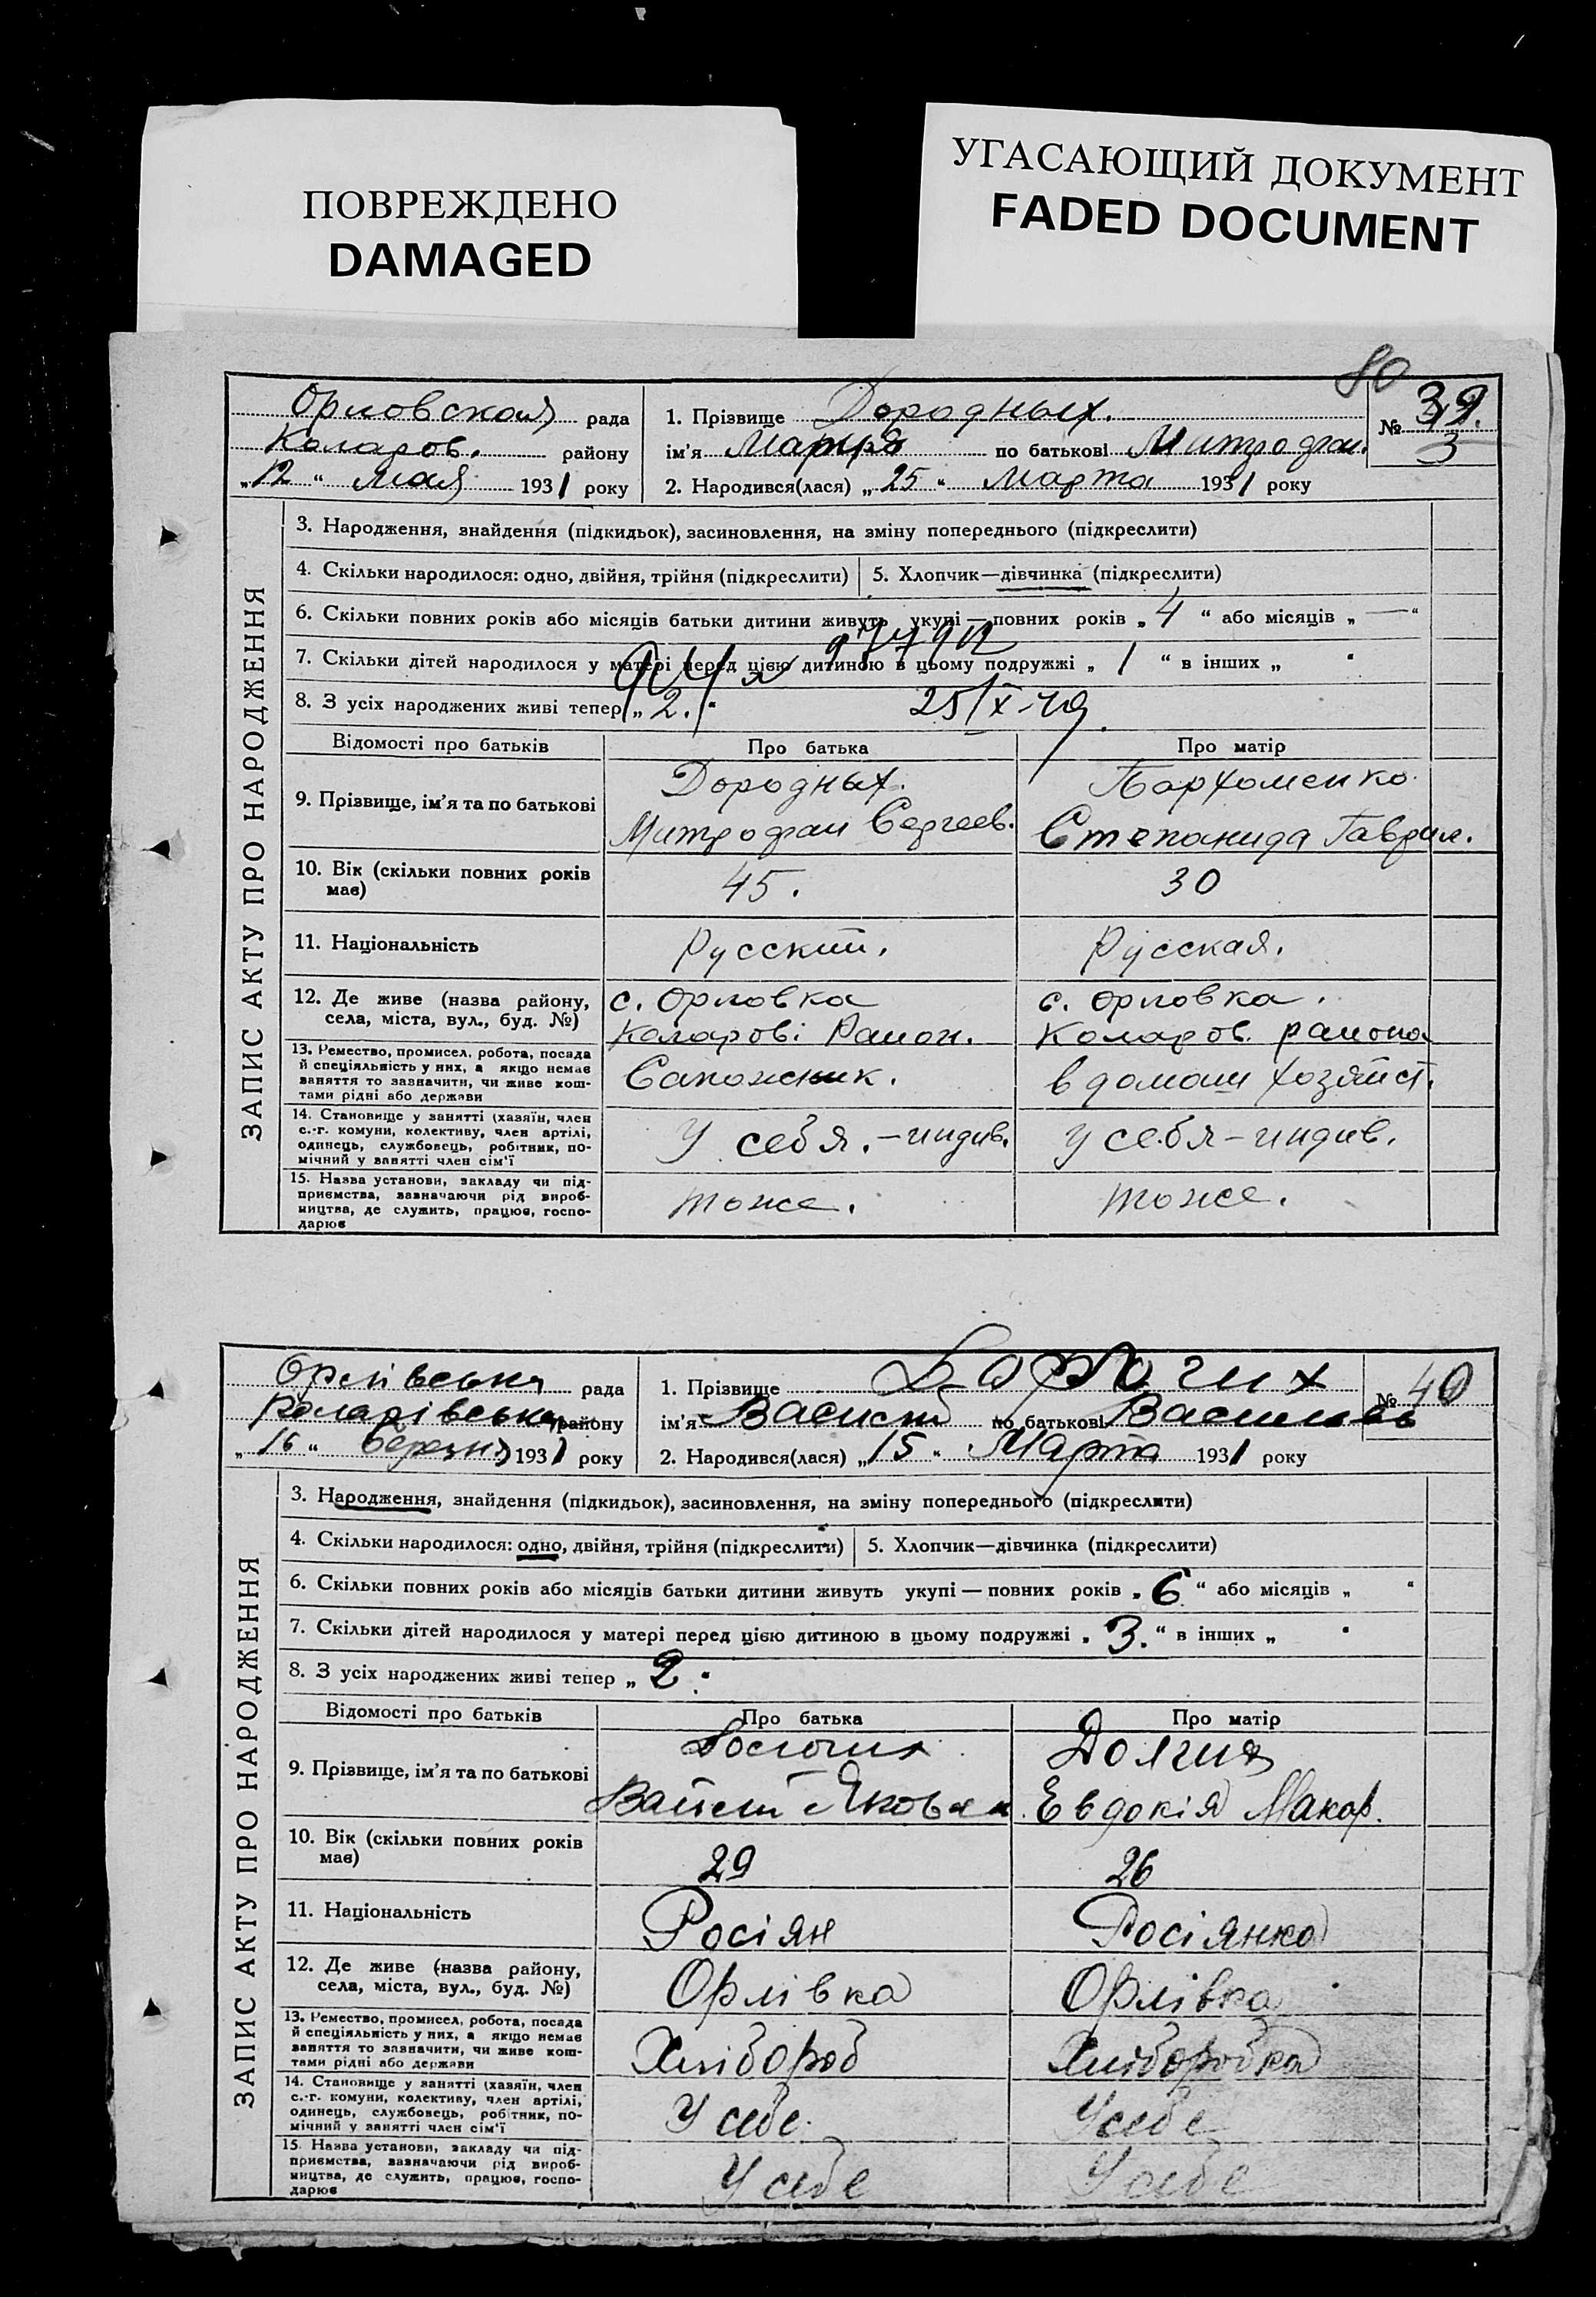 ПОВРЕЖДЕНО
DAMAGED
УГАСАЮЩИЙ ДОКУМЕНТ
FADED DOCUMENT
80
Орловская рада
Коларов. району
„12“ мая 1931 року
1. Прізвище Дородных.
ім'я Мария по батькові Митрофан.
2. Народився(лася) „25“ Марта 1931 року
№ 39.
3
ЗАПИС АКТУ ПРО НАРОДЖЕННЯ
3. Народження, знайдення (підкидьок), засиновлення, на зміну попереднього (підкреслити)
4. Скільки народилося: одно, двійня, трійня (підкреслити) 5. Хлопчик—дівчинка (підкреслити)
6. Скільки повних років або місяців батьки дитини живуть укупі — повних років „4“ або місяців „—“
7. Скільки дітей народилося у матері перед цією дитиною в цьому подружжі „1“ в інших „
8. З усіх народжених живі тепер „2.“
25/X-49
Відомості про батьків Про батька Про матір
9. Прізвище, ім'я та по батькові
Дородных.
Митрофан Сергеев.
Пархоменко
Степанида Гаврил.
10. Вік (скільки повних років має) 45. 30
11. Національність Русский. Русская.
12. Де живе (назва району, села, міста, вул., буд. №)
с. Орловка
Коларові Район.
с. Орловка.
Коларов. района
13. Ремество, промисел, робота, посада
й спеціяльність у них, а якщо немає
заняття то зазначити, чи живе кош-
тами рідні або держави
Сапожник.
в домаш хозяйст.
14. Становище у занятті (хазяїн, член
с.-г. комуни, колективу, член артілі,
одинець, службовець, робітник, по-
мічний у занятті член сім'ї
У себя.-индив.
у себя-индив.
15. Назва установи, закладу чи під-
приємства, зазначаючи рід вироб-
ництва, де служить, працює, госпо-
дарює
тоже.
тоже.
Орлівська рада
Коларівська району
„16“ березня 1931 року
1. Прізвище
ім'я Василий по батькові Васильев
2. Народився(лася) „15“ Марта 1931 року
№ 40
ЗАПИС АКТУ ПРО НАРОДЖЕННЯ
3. Народження, знайдення (підкидьок), засиновлення, на зміну попереднього (підкреслити)
4. Скільки народилося: одно, двійня, трійня (підкреслити) 5. Хлопчик—дівчинка (підкреслити)
6. Скільки повних років або місяців батьки дитини живуть укупі — повних років „6“ або місяців „ “
7. Скільки дітей народилося у матері перед цією дитиною в цьому подружжі „3.“ в інших „
8. З усіх народжених живі тепер „2
Відомості про батьків Про батька Про матір
9. Прізвище, ім'я та по батькові
Долгия
Евдокія Макар.
10. Вік (скільки повних років має) 29 26
11. Національність Росіян Росіянка
12. Де живе (назва району, села, міста, вул., буд. №) Орлівка Орлівка
13. Ремество, промисел, робота, посада
й спеціяльність у них, а якщо немає
заняття то зазначити, чи живе кош-
тами рідні або держави
Хлібороб
Хліборобка
14. Становище у занятті (хазяїн, член
с.-г. комуни, колективу, член артілі,
одинець, службовець, робітник, по-
мічний у занятті член сім'ї
У себе
У себе
15. Назва установи, закладу чи під-
приємства, зазначаючи рід вироб-
ництва, де служить, працює, госпо-
дарює
У себе
У себе